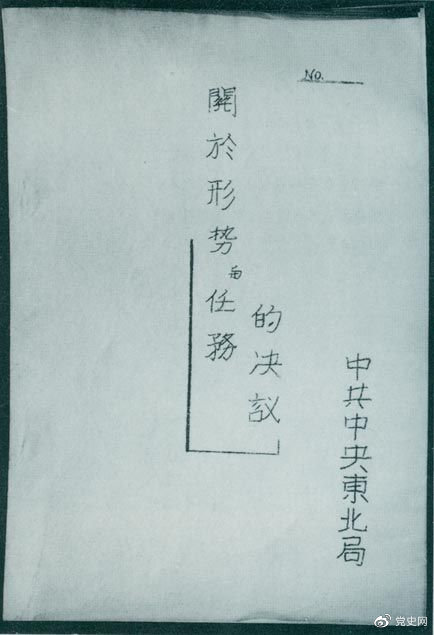 No.
中共中央東北局
關於形势与任務
的决议
党史网